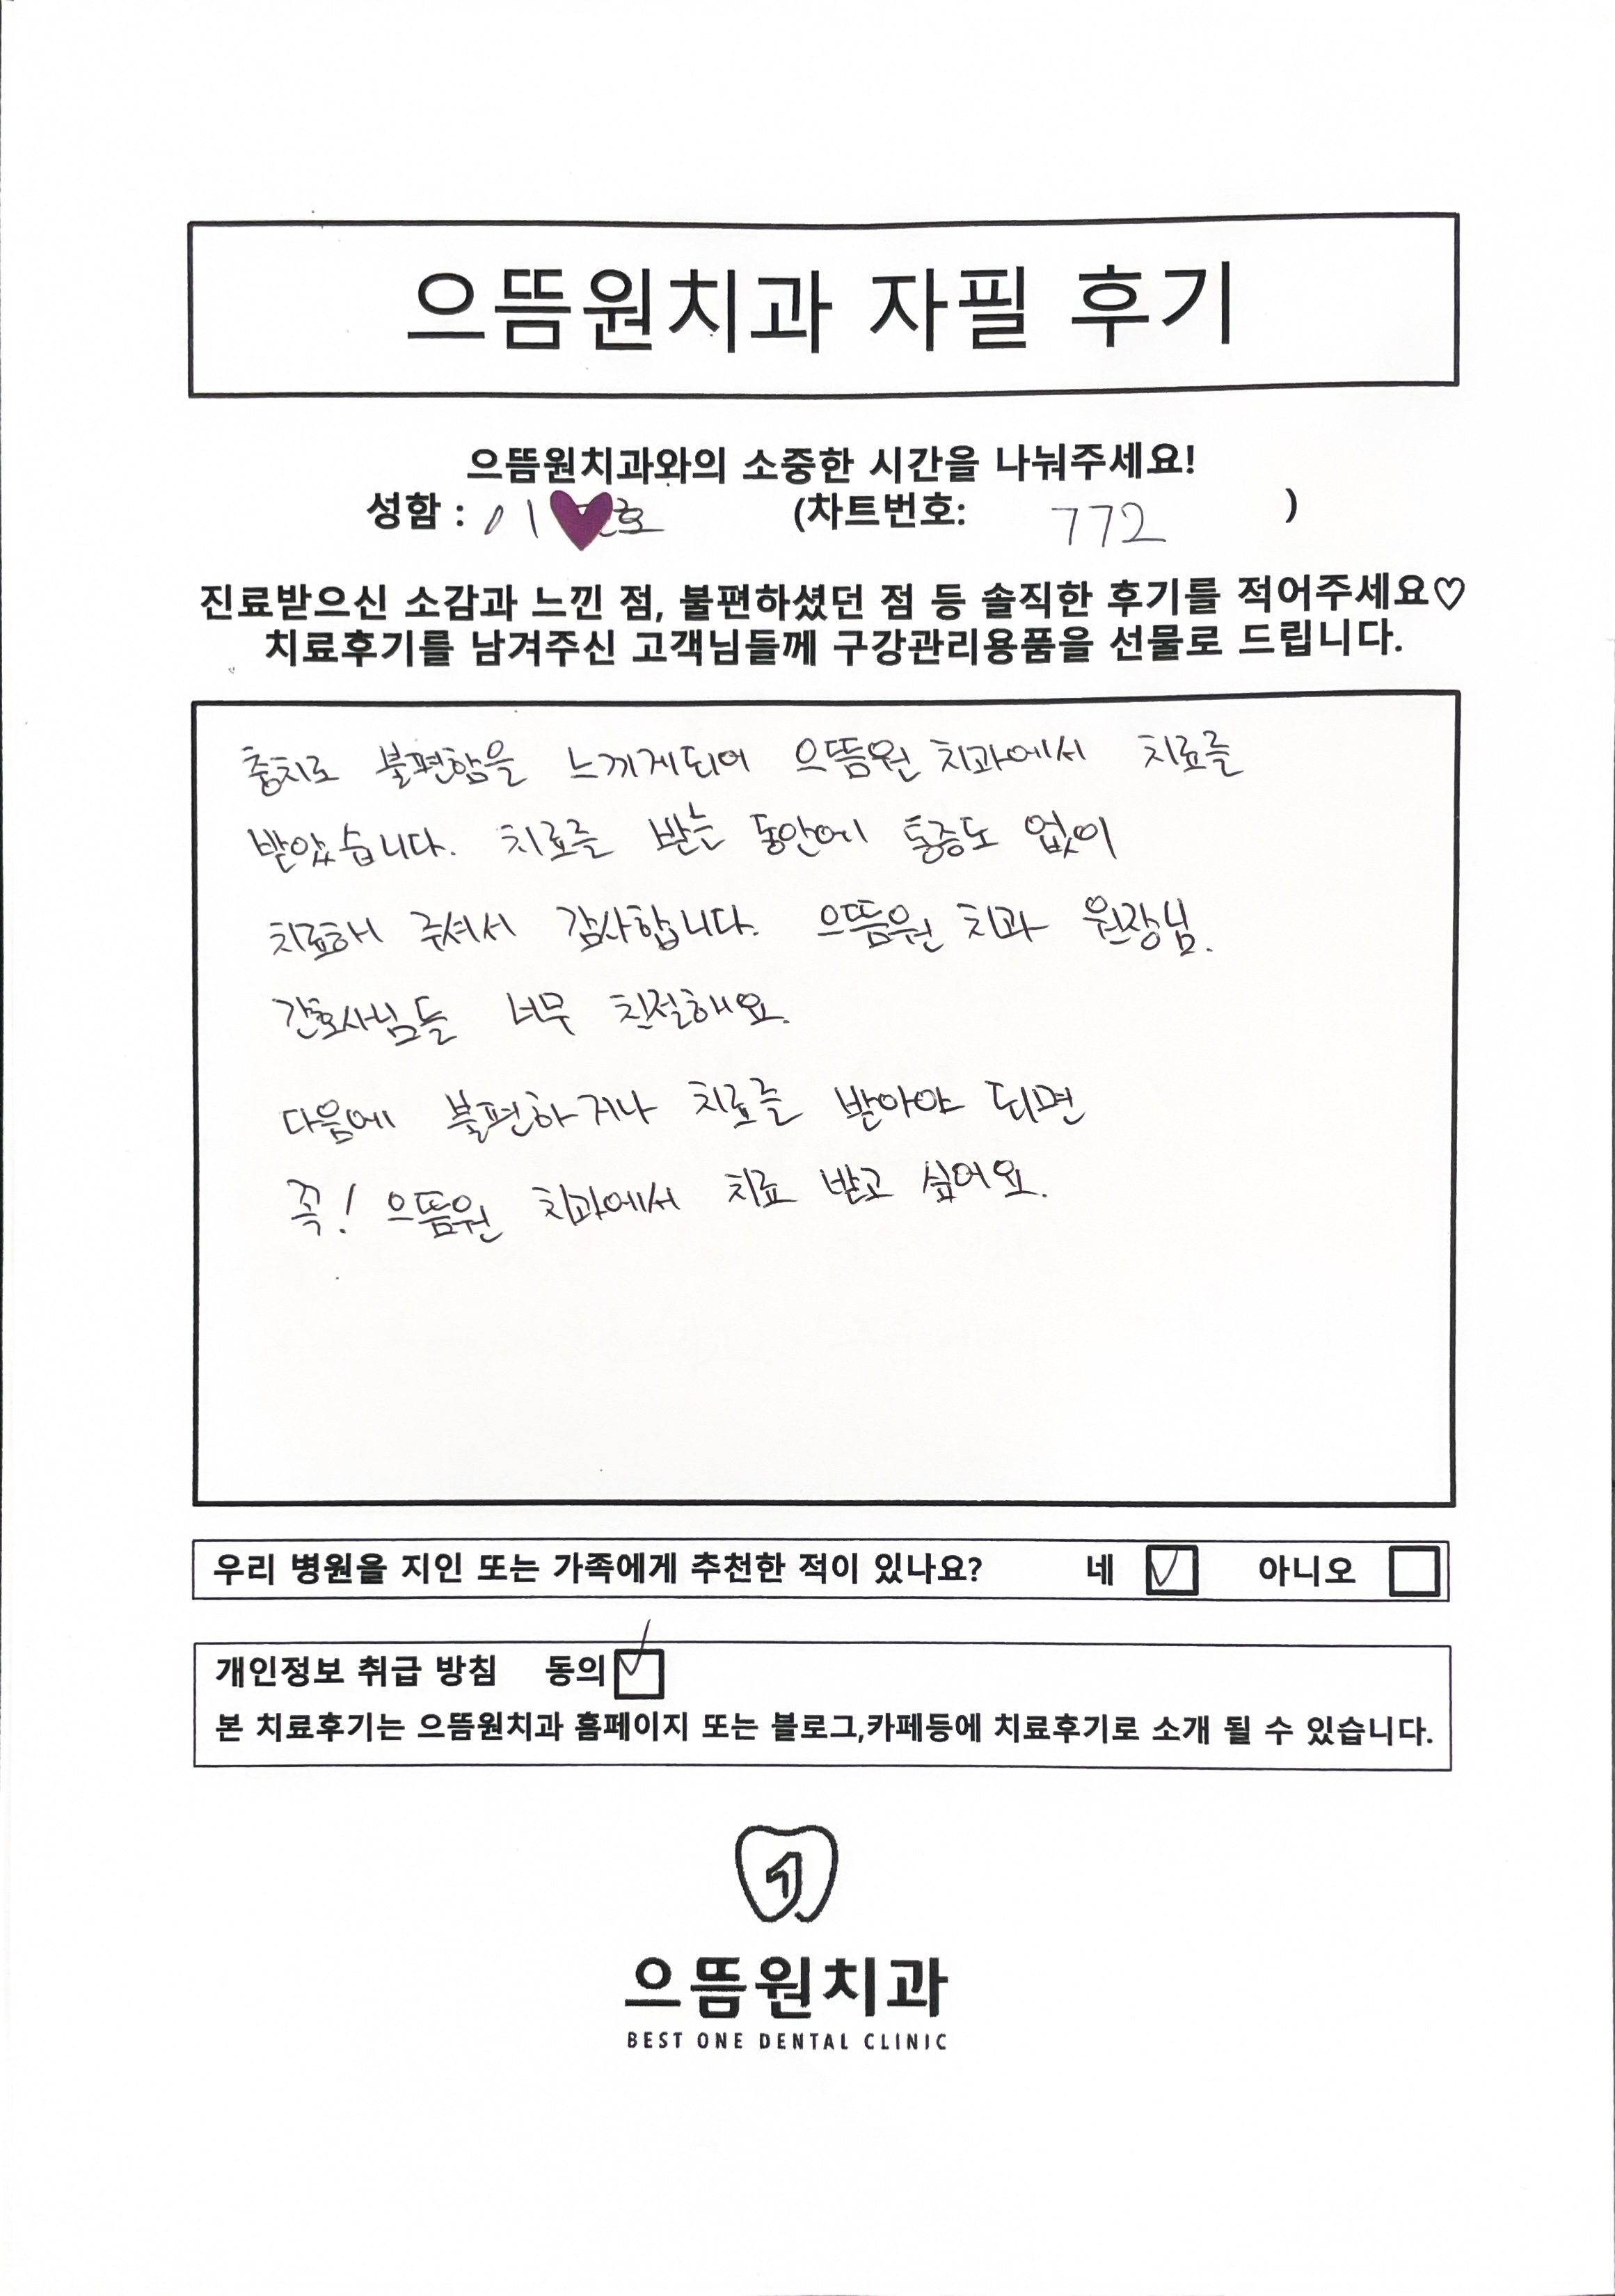 으뜸원치과 자필 후기
으뜸원치과와의 소중한 시간을 나눠주세요!
성함 : 이 호 (차트번호: 772 )
진료받으신 소감과 느낀 점, 불편하셨던 점 등 솔직한 후기를 적어주세요♡
치료후기를 남겨주신 고객님들께 구강관리용품을 선물로 드립니다.
충치로 불편함을 느끼게되어 으뜸원 치과에서 치료를
받았습니다. 치료를 받는 동안에 통증도 없이
치료해 주셔서 감사합니다. 으뜸원 치과 원장님.
간호사님들 너무 친절해요.
다음에 불편하거나 치료를 받아야 되면
꼭! 으뜸원 치과에서 치료 받고 싶어요.
우리 병원을 지인 또는 가족에게 추천한 적이 있나요? 네 아니오
개인정보 취급 방침 동의
본 치료후기는 으뜸원치과 홈페이지 또는 블로그,카페등에 치료후기로 소개 될 수 있습니다.
1
으뜸원치과
BEST ONE DENTAL CLINIC